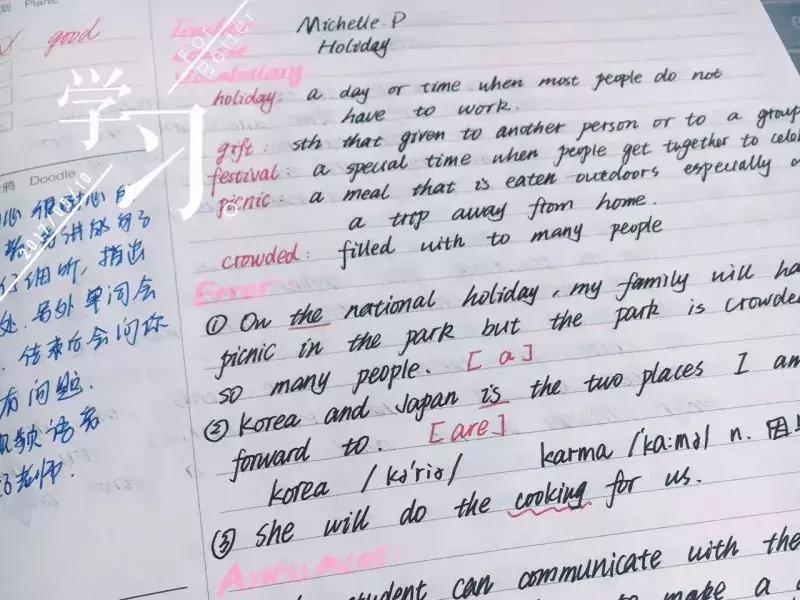 Plans
good
Michelle. P
Holiday
Vocabulary
holiday: a day or time when most people do not
have to work.
gift: sth that given to another person or to a group
festival: a special time when people get together to
picnic: a meal that is eaten outdoors especially
a trip away from home.
crowded: filled with to many people
Error
① On the national holiday, my family will
picnic in the park but the park is
so many people. [a]
② Korea and Japan is the two places I am
forward to. [are]
korea /kə'riə/ karma /'ka:mə/ n. 因
③ she will do the cooking for us.
Assessment
can communicate with the
to make a
学习
FOR
matter
Doodle
细听，指出
处. 另外 单词会
结束后会问你
有问题.
语音
老师.